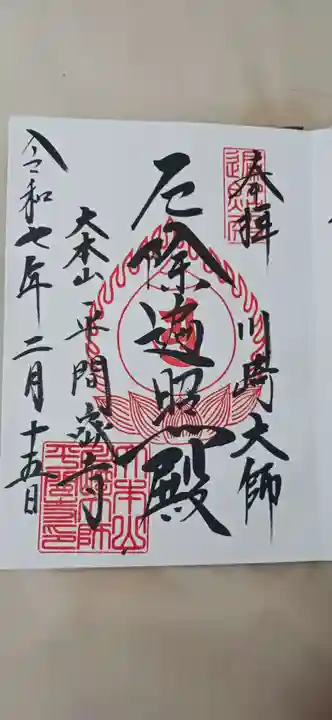 奉拝
川崎大師
厄除遍照殿
大本山 平間寺
令和七年二月十五日